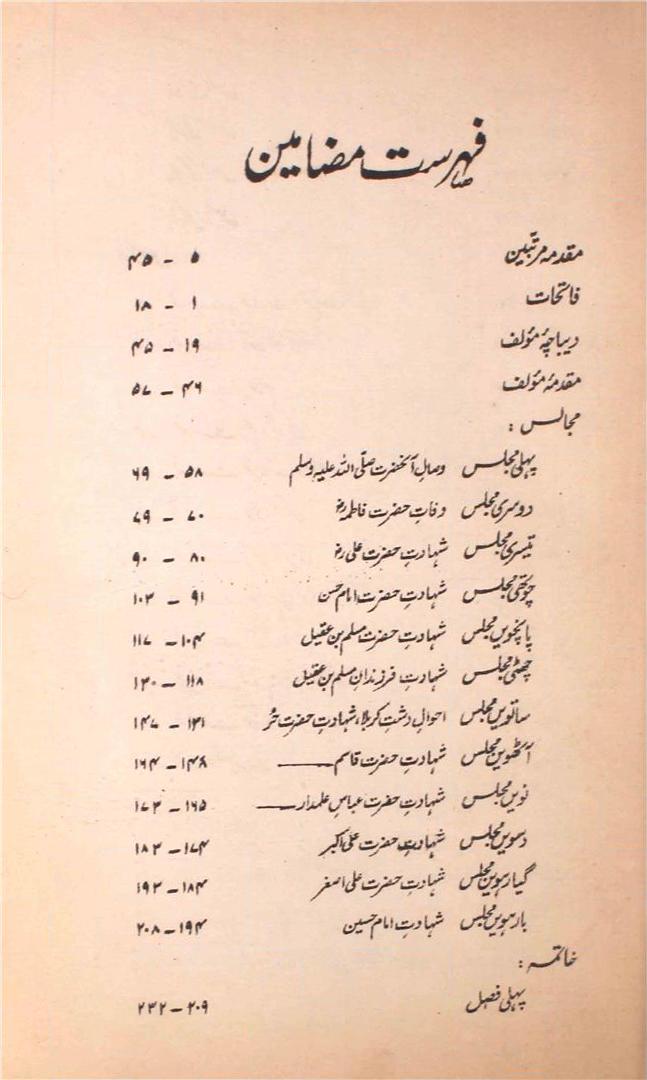 فہرست مضامین
مقدمہ مرتبین ۵ - ۴۵
فاتحات ۱ - ۱۸
دیباچۂ مؤلف ۱۹ - ۴۵
مقدمۂ مؤلف ۴۶ - ۵۷
مجالس :
پہلی مجلس وصالِ آنحضرت صلّی اللہ علیہ وسلم ۵۸ - ۶۹
دوسری مجلس وفاتِ حضرت فاطمہ رض ۷۰ - ۷۹
تیسری مجلس شہادتِ حضرت علی رض ۸۰ - ۹۰
چوتھی مجلس شہادتِ حضرت امام حسن ۹۱ - ۱۰۳
پانچویں مجلس شہادتِ حضرت مسلم بن عقیل ۱۰۴ - ۱۱۷
چھٹی مجلس شہادتِ فرزندانِ مسلم بن عقیل ۱۱۸ - ۱۳۰
ساتویں مجلس احوالِ دشتِ کربلا، شہادتِ حضرت حُر ۱۳۱ - ۱۴۷
آٹھویں مجلس شہادتِ حضرت قاسم ۱۴۸ - ۱۶۴
نویں مجلس شہادتِ حضرت عباس علمدار ۱۶۵ - ۱۷۳
دسویں مجلس شہادتِ حضرت علی اکبر ۱۷۴ - ۱۸۳
گیارہویں مجلس شہادتِ حضرت علی اصغر ۱۸۴ - ۱۹۳
بارہویں مجلس شہادتِ امام حسین ۱۹۴ - ۲۰۸
خاتمہ :
پہلی فصل ۲۰۹ - ۲۳۲